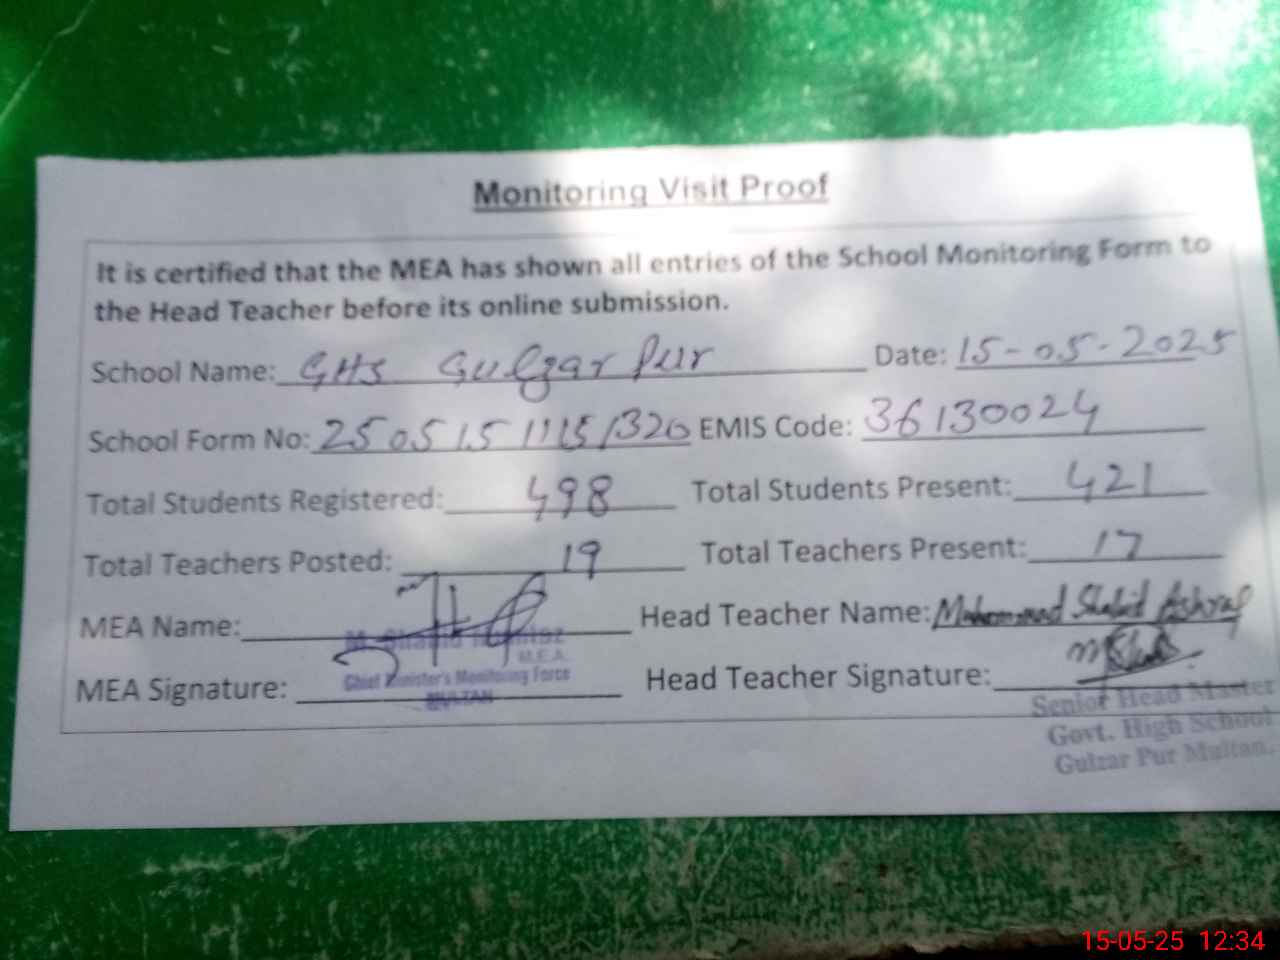 Monitoring Visit Proof
It is certified that the MEA has shown all entries of the School Monitoring Form to
the Head Teacher before its online submission.
School Name: GHS Gulzar Pur Date: 15-05-2025
School Form No: 25051511151320 EMIS Code: 36130024
Total Students Registered: 498 Total Students Present: 421
Total Teachers Posted: 19 Total Teachers Present: 17
MEA Name: Head Teacher Name: Muhammad Shahid Ashraf
M. Shahid
M.E.A.
Chief Minister's Monitoring Force
MULTAN
MEA Signature: Head Teacher Signature:
Senior Head Master
Govt. High School
Gulzar Pur Multan.
15-05-25 12:34